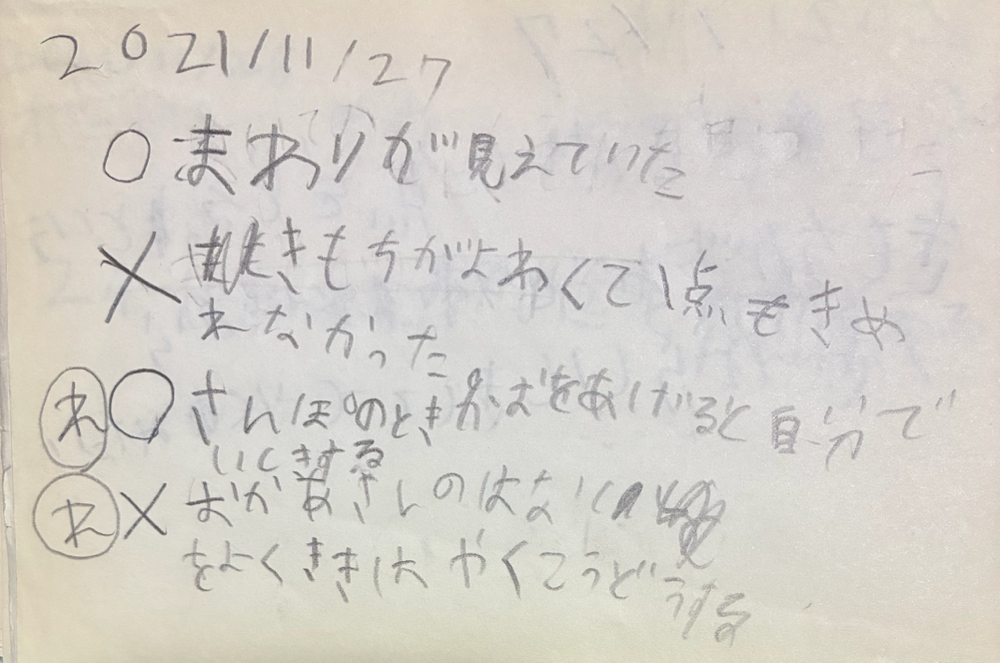 2021/11/27
○ まわりが見えていた
× きもちがよわくて1点もきめ
れなかった
れ ○ さんぽのときかおをあげると自分で
いしきする
れ × おかあさんのはなし
をよくききはやくこうどうする